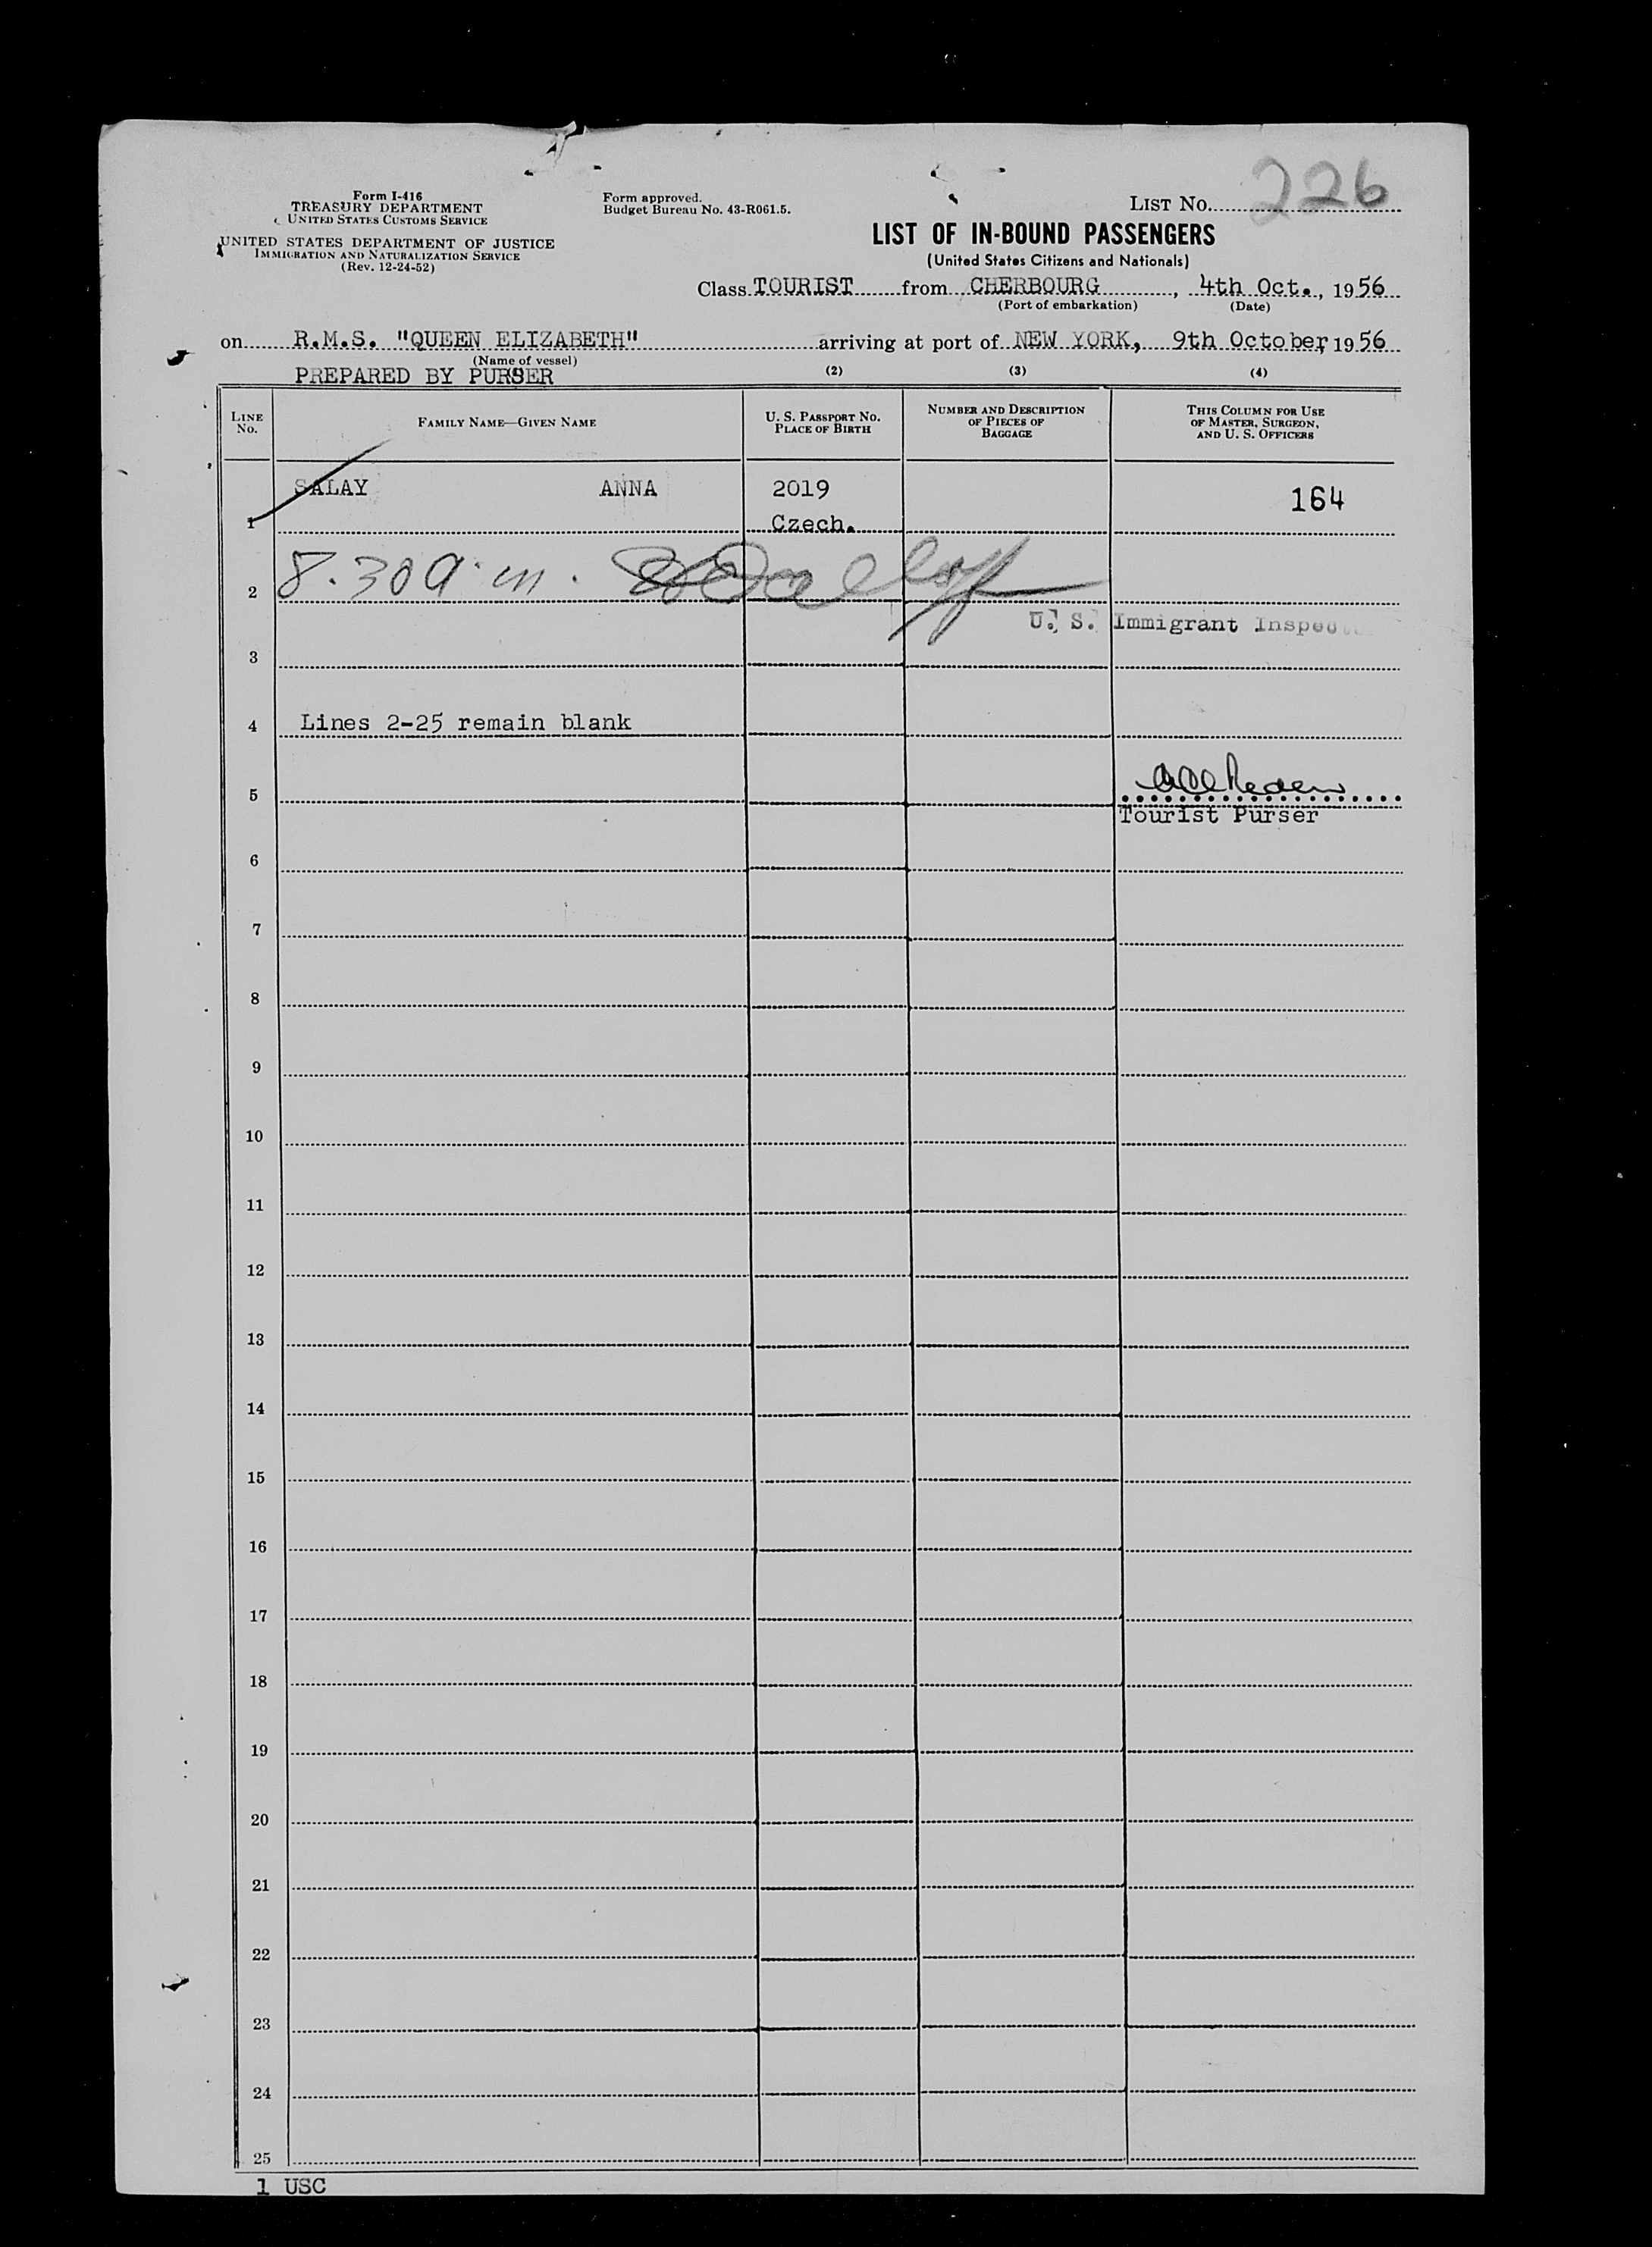 Form I-416
TREASURY DEPARTMENT
UNITED STATES CUSTOMS SERVICE
UNITED STATES DEPARTMENT OF JUSTICE
IMMIGRATION AND NATURALIZATION SERVICE
(Rev. 12-24-52)
Form approved.
Budget Bureau No. 43-R061.5.
LIST NO. 226
LIST OF IN-BOUND PASSENGERS
(United States Citizens and Nationals)
Class TOURIST from CHERBOURG, 4th Oct., 1956
(Port of embarkation) (Date)
on R.M.S. "QUEEN ELIZABETH" arriving at port of NEW YORK, 9th October, 1956
(Name of vessel)
PREPARED BY PURSER (2) (3) (4)
LINE NO. FAMILY NAME—GIVEN NAME U. S. PASSPORT NO. PLACE OF BIRTH NUMBER AND DESCRIPTION OF PIECES OF BAGGAGE THIS COLUMN FOR USE OF MASTER, SURGEON, AND U. S. OFFICERS
SALAY ANNA 2019 164
1 Czech.
2 8.30 a.m.
U. S. Immigrant
3
4 Lines 2-25 remain blank
5
Tourist Purser
6
7
8
9
10
11
12
13
14
15
16
17
18
19
20
21
22
23
24
25
1 USC